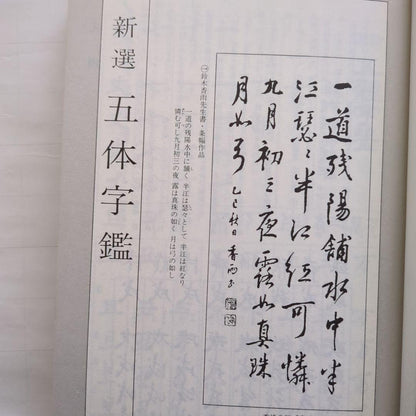 一道残陽舗水中半
江瑟々半江紅可憐
九月初三夜露如真珠
月如弓 乙巳秋日 香雨书
㈠鈴木香雨先生書・条幅作品
一道の残陽水中に舗く 半江は瑟々として 半江は紅なり
憐む可し九月初三の夜 露は真珠の如く 月は弓の如し
新選 五体字鑑